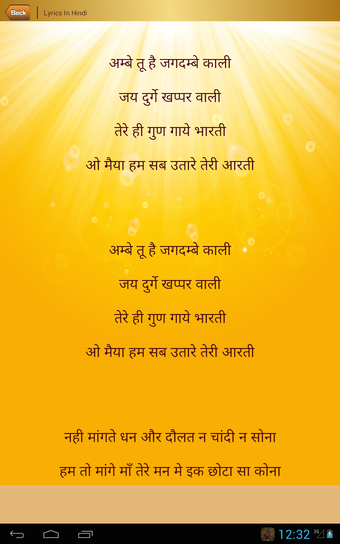 Back
Lyrics In Hindi
अम्बे तू है जगदम्बे काली
जय दुर्गे खप्पर वाली
तेरे ही गुण गाये भारती
ओ मैया हम सब उतारे तेरी आरती
अम्बे तू है जगदम्बे काली
जय दुर्गे खप्पर वाली
तेरे ही गुण गाये भारती
ओ मैया हम सब उतारे तेरी आरती
नही मांगते धन और दौलत न चांदी न सोना
हम तो मांगे माँ तेरे मन मे इक छोटा सा कोना
12:32